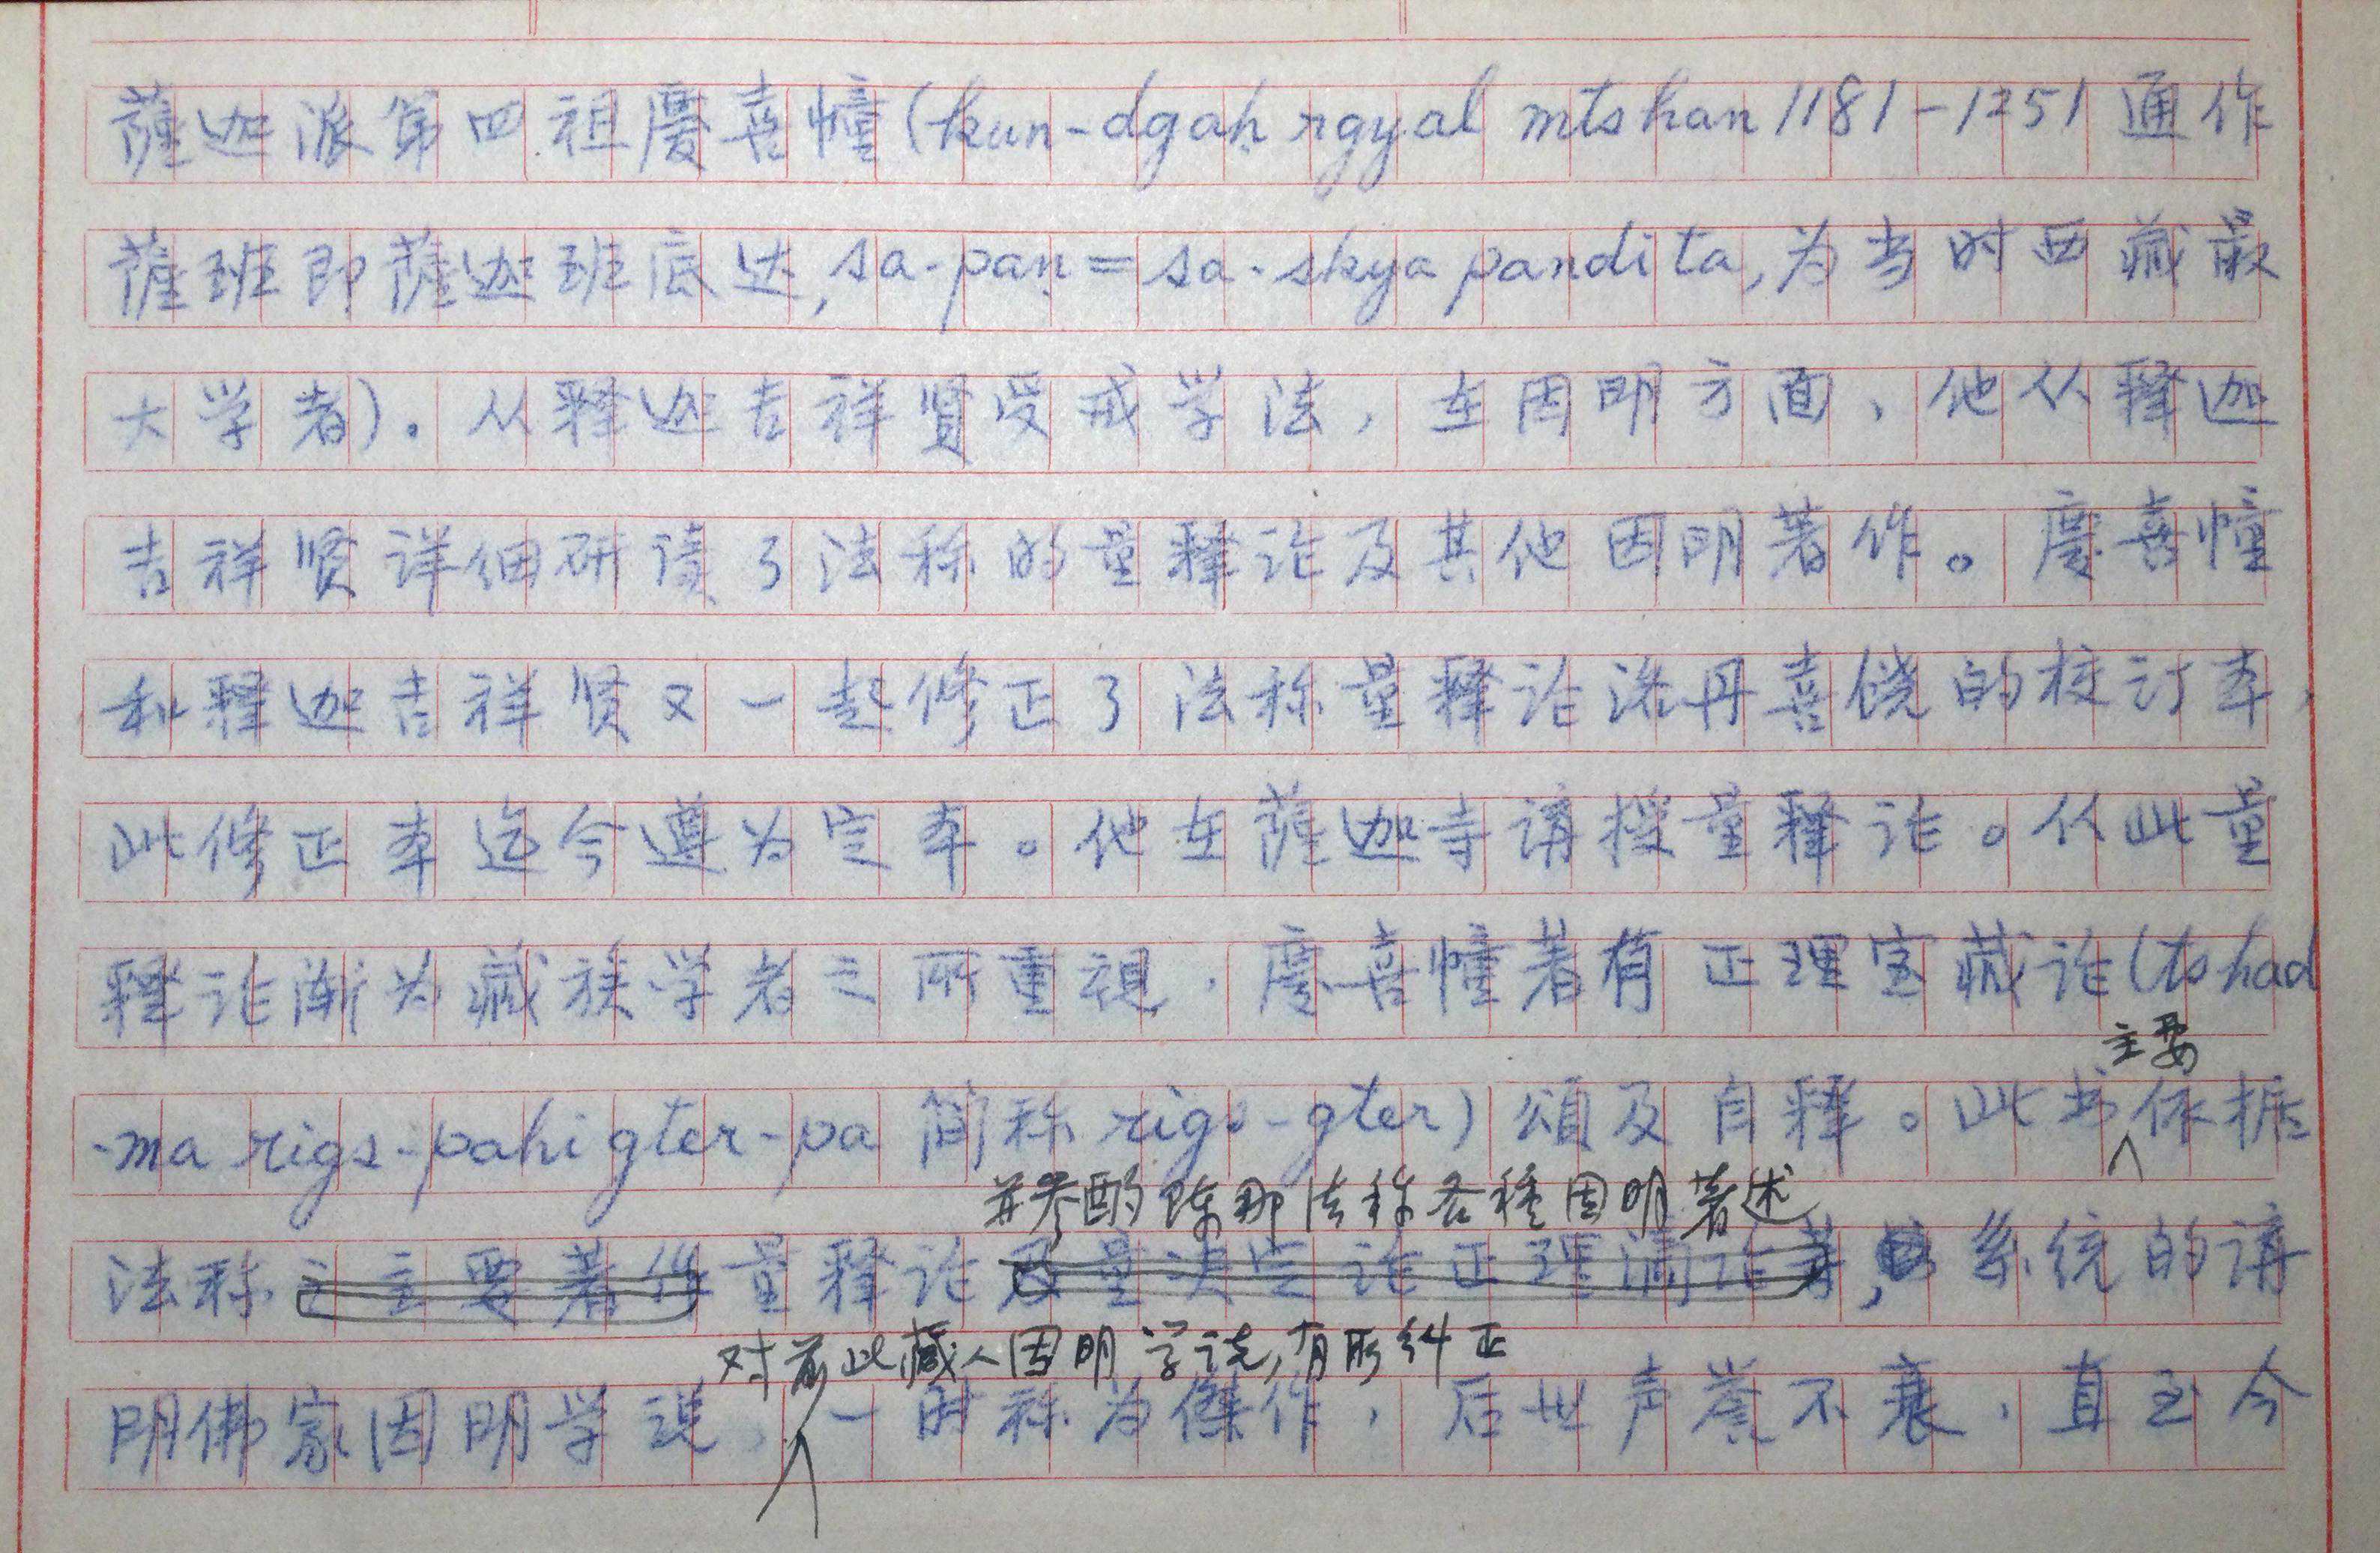 薩迦派第四祖慶喜幢(kun-dgaḥ rgyal mtshan 1181-1251 通作
薩班即薩迦班底达, sa-paṇ = sa-skya pandita, 为当时西藏最
大学者)。从释迦吉祥贤受戒学法，在因明方面、他从释迦
吉祥贤详细研读了法称的量释论及其他因明著作。慶喜幢
和释迦吉祥贤又一起修正了法称量释论洛丹喜饶的校订本，
此修正本迄今遵为定本。他在薩迦寺讲授量释论。从此量
释论渐为藏族学者之所重視。慶喜幢著有正理宝藏论(tshad
主要
-ma rigs-pahi gter-pa 简称 rigs-gter)頌及自释。此书依据
并参酌陈那法称各種因明著述
法称之主要著作量释论及量决定论正理滴论等, 系统的讲
对前此藏人因明学说, 有所纠正
明佛家因明学说、一时称为傑作，后世声誉不衰，直至今